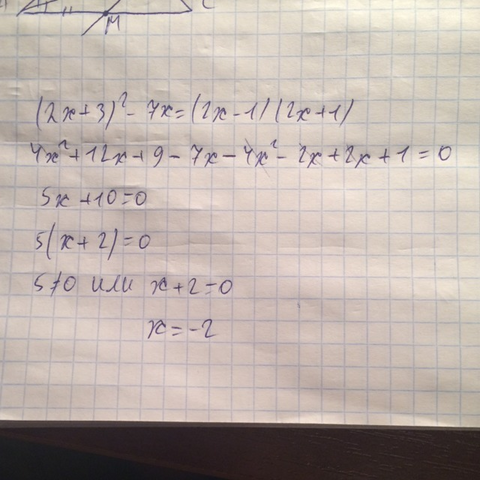 M C
(2x+3)² - 7x = (2x-1)(2x+1)
4x² + 12x + 9 - 7x - 4x² - 2x + 2x + 1 = 0
5x + 10 = 0
5(x+2) = 0
5≠0 или x+2=0
x = -2